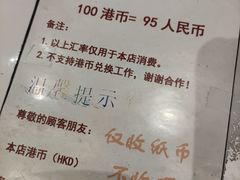 100 港币= 95 人民币
备注：
1. 以上汇率仅用于本店消费。
2. 不支持港币兑换工作，谢谢合作！
温馨提示
尊敬的顾客朋友：
仅收纸币
本店港币（HKD）
不收